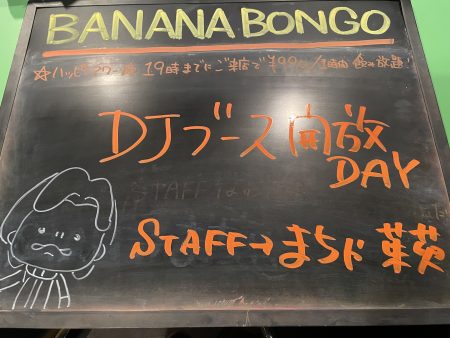 BANANA BONGO
☆ハッピーアワー☆ 19時までにご来店で¥990/1時間 飲み放題!
DJブース開放
DAY
STAFF→まらド 葉英